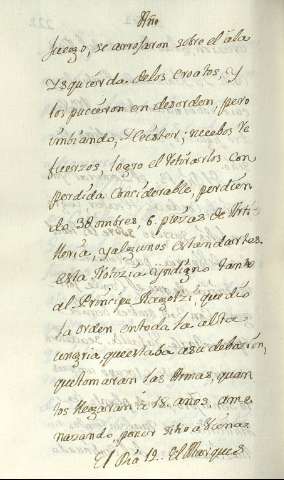 Año
fuerzo, se arrojaron sobre el ala
Ysquierda de los Croatos, y
los pucieron en desorden, pero
imbiando, Heister; nuebos Re
fuerzos, logro el retirarlos con
perdida conciderable, perdien
do 3 ombres, 6, piezas de Arti
lleria, y algunos estandartes.
esta Notizia yndigno tanto
al Principe Ragotzi, que dio
la orden, en toda la alta
ungria, que estaba a su debocion,
que tomaran las Armas, quan
tos llegaran a 18. años, ame
nazando, poner sitio a Viena
El Dia 19. El Marques